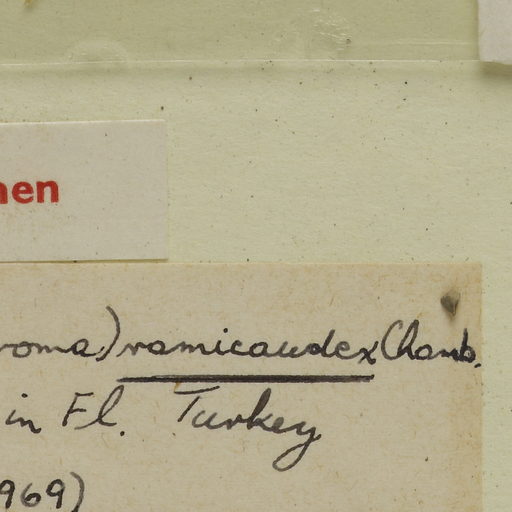 men
roma) ramicaudex Chamb.
in Fl. Turkey
1969)